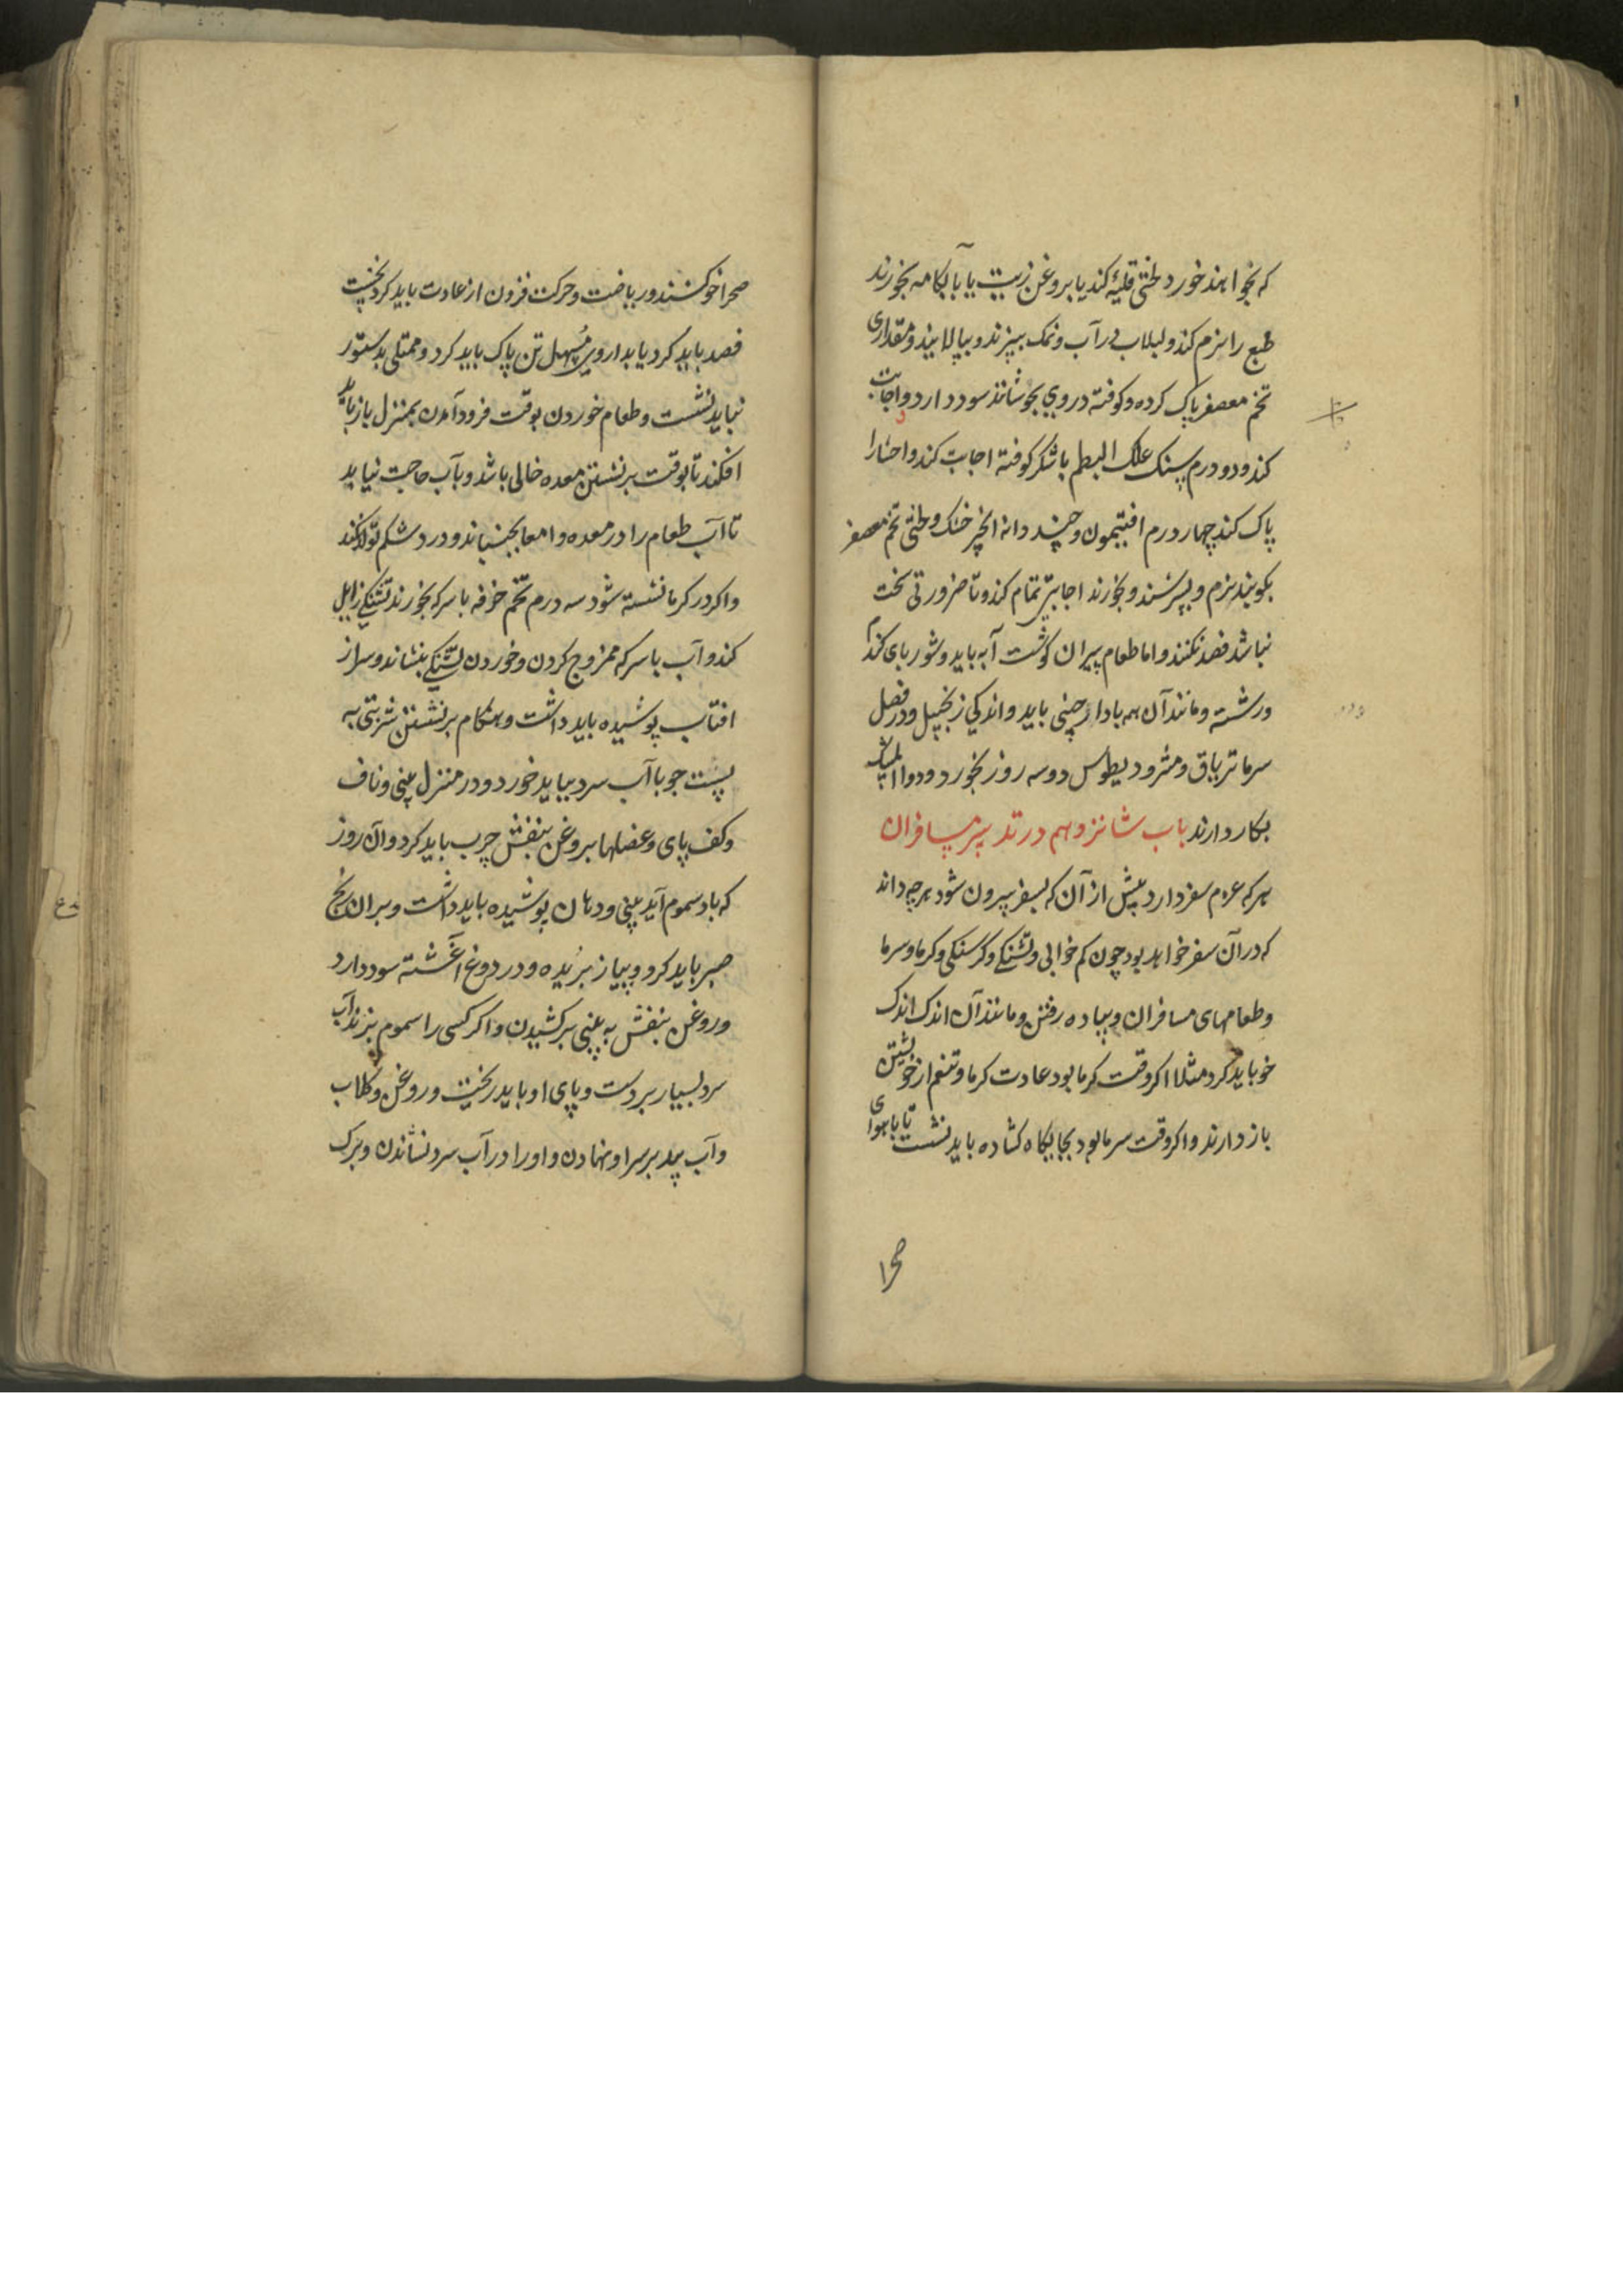 که بخواهند خورد لختی قلیه کند یا بروغن زیت یا بآبکامه بخورند
طبع را نرم کند و لبلاب در آب و نمک بپزند و بپالایند و مقداری
تخم معصفر پاک کرده و کوفته در وی بجوشانند سود دارد و اجابت
کند و دو درم سنک علک البطم با شکر کوفته اجابت کند و احشا را
پاک کند چهار درم افتیمون و چند دانه انجیر خشک و لختی تخم معصفر
بکوبند نرم و بسرشند و بخورند اجابتی تمام کند و تا ضرورتی سخت
نباشد فصد نکنند و اما طعام پیران کوشت آبه باید و شوربای کندم
و رشته و مانند آن همه با دارچینی باید و اندکی زنجبیل و در فصل
سرما تریاق و مثرودیطوس دو سه روز بخورد و دواء المسک
بکار دارند باب شانزدهم در تدبیر مسافران
هرکه عزم سفر دارد پیش از آن که بسفر بیرون شود هرچه داند
که در آن سفر خواهد بود چون کم خوابی و تشنکی و کرسنکی و کرما و سرما
و طعامهای مسافران و پیاده رفتن و مانند آن اندک اندک
خو باید کرد مثلا اکر وقت کرما بود عادت کرما و تنعم از خویشتن
باز دارند و اکر وقت سرما بود بجایکاه کشاده باید نشست تا با هوای
صحرا
صحرا خو کنند و ریاضت و حرکت فزون از عادت باید کرد نخست
فصد باید کرد یا بداروی مسهل تن پاک باید کرد و ممتلی بر ستور
نباید نشست و طعام خوردن بوقت فرود آمدن بمنزل باز باید
افکند تا بوقت برنشستن معده خالی باشد و بآب حاجت نیاید
تا آب طعام را در معده و امعا بجنباند و درد شکم تولد نکند
و اکر در کرما نشسته شود سه درم تخم خرفه با سرکه بخورند تشنکی زایل
کند و آب با سرکه ممزوج کردن و خوردن تشنکی بنشاند و سر از
افتاب پوشیده باید داشت و هنکام برنشستن شربتی به
پست جو با آب سرد بباید خورد و در منزل بینی و ناف
و کف پای و عضلها بروغن بنفش چرب باید کرد و آن روز
که باد سموم آید بینی و دهان پوشیده باید داشت و بر آن رنج
صبر باید کرد و پیاز بریده و در دوغ آغشته سود دارد
و روغن بنفش به بینی برکشیدن و اکر کسی را سموم بزند آب
سرد بسیار بر دست و پای او باید ریخت و روغن و کلاب
و آب بید بر سر او نهادن و او را در آب سرد نشاندن و برک